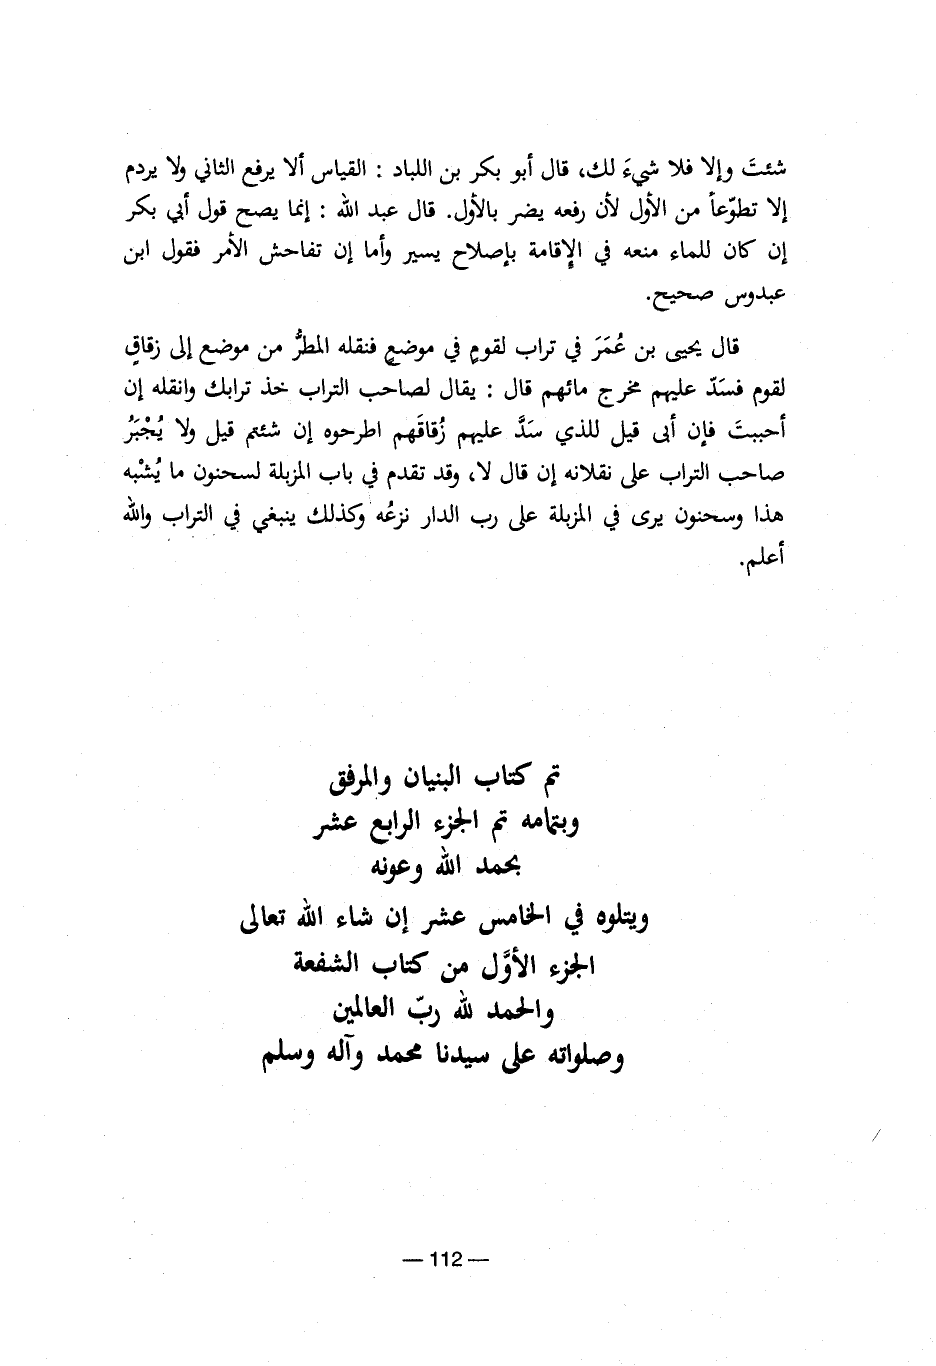 شئتَ وإلا فلا شيءَ لك، قال أبو بكر بن اللباد : القياس ألا يرفع الثاني ولا يردم
إلا تطوّعاً من الأول لأن رفعه يضر بالأول. قال عبد الله : إنما يصح قول أبي بكر
إن كان للماء منعه في الإقامة بإصلاح يسير وأما إن تفاحش الأمر فقول ابن
عبدوس صحيح.
قال يحيى بن عُمَرَ في تراب لقومٍ في موضعٍ فنقله المطرُّ من موضع إلى زقاقٍ
لقوم فسَدّ عليهم مخرج مائهم قال : يقال لصاحب التراب خذ ترابك وانقله إن
أحببتَ فإن أبى قيل للذي سَدَّ عليهم زُقاقَهم اطرحوه إن شئتم قيل ولا يُجْبَرُ
صاحب التراب على نقلانه إن قال لا، وقد تقدم في باب المزبلة لسحنون ما يُشْبه
هذا وسحنون يرى في المزبلة على رب الدار نزعُه وكذلك ينبغي في التراب والله
أعلم.
تم كتاب البنيان والمرفق
وبتمامه تم الجزء الرابع عشر
بحمد الله وعونه
ويتلوه في الخامس عشر إن شاء الله تعالى
الجزء الأوَّل من كتاب الشفعة
والحمد لله ربّ العالمين
وصلواته على سيدنا محمد وآله وسلم
— 112 —